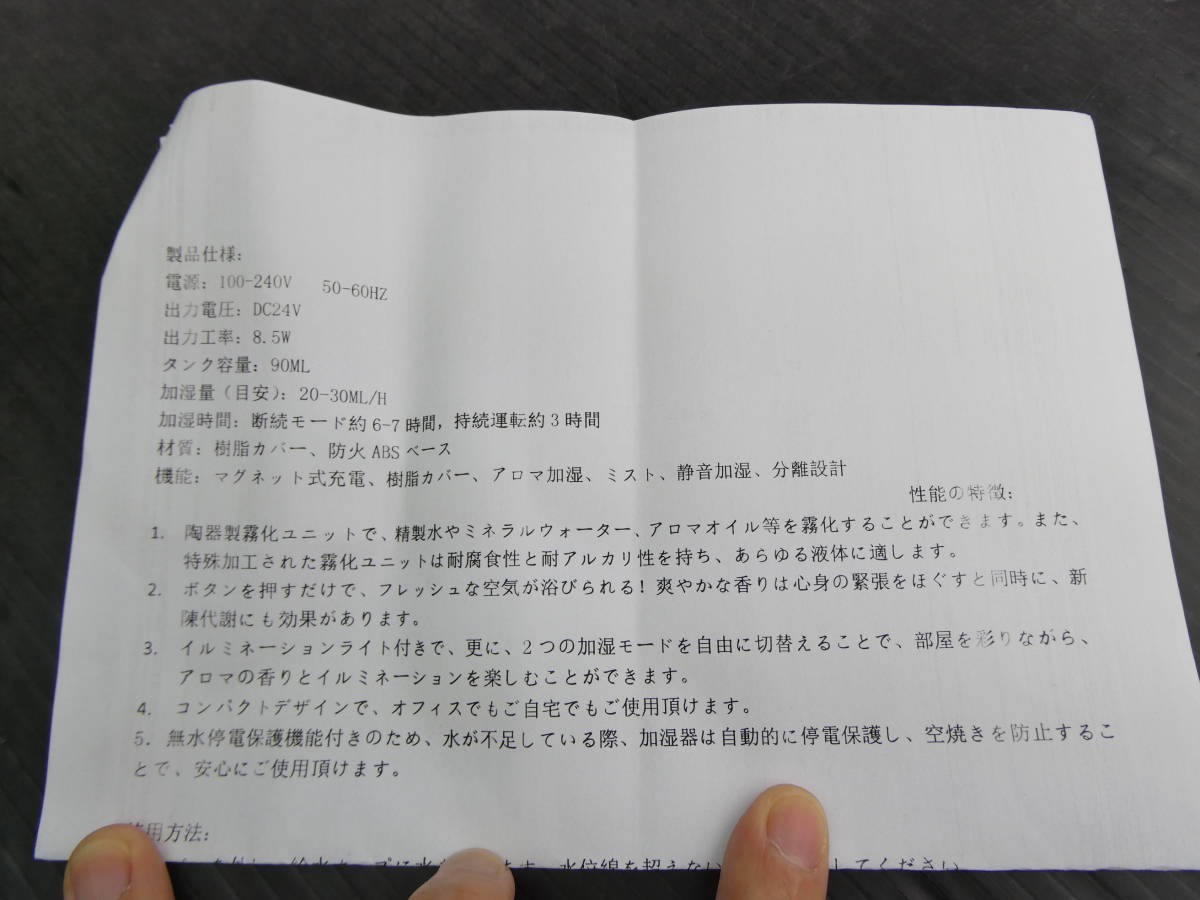 製品仕様:
電源: 100-240V 50-60HZ
出力電圧: DC24V
出力工率: 8.5W
タンク容量: 90ML
加湿量（目安）: 20-30ML/H
加湿時間: 断続モード約6-7時間, 持続運転約3時間
材質: 樹脂カバー、防火ABSベース
機能: マグネット式充電、樹脂カバー、アロマ加湿、ミスト、静音加湿、分離設計
性能の特徴:
1. 陶器製霧化ユニットで、精製水やミネラルウォーター、アロマオイル等を霧化することができます。また、
特殊加工された霧化ユニットは耐腐食性と耐アルカリ性を持ち、あらゆる液体に適します。
2. ボタンを押すだけで、フレッシュな空気が浴びられる! 爽やかな香りは心身の緊張をほぐすと同時に、新
陳代謝にも効果があります。
3. イルミネーションライト付きで、更に、2つの加湿モードを自由に切替えることで、部屋を彩りながら、
アロマの香りとイルミネーションを楽しむことができます。
4. コンパクトデザインで、オフィスでもご自宅でもご使用頂けます。
5. 無水停電保護機能付きのため、水が不足している際、加湿器は自動的に停電保護し、空焼きを防止するこ
とで、安心にご使用頂けます。
用方法:
水位線を超えない してください